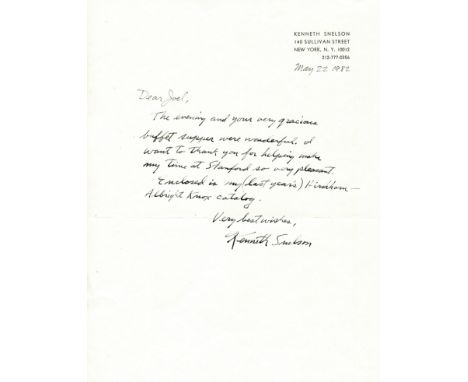 KENNETH SNELSON
140 SULLIVAN STREET
NEW YORK, N. Y. 10012
212-777-0356
May 22 1982
Dear Joel,
The evening and your very gracious
buffet supper were wonderful. I
want to thank you for helping make
my time at Stanford so very pleasant.
Enclosed is my (last year's) Hirshhorn-
Albright Knox catalog.
Very best wishes,
Kenneth Snelson